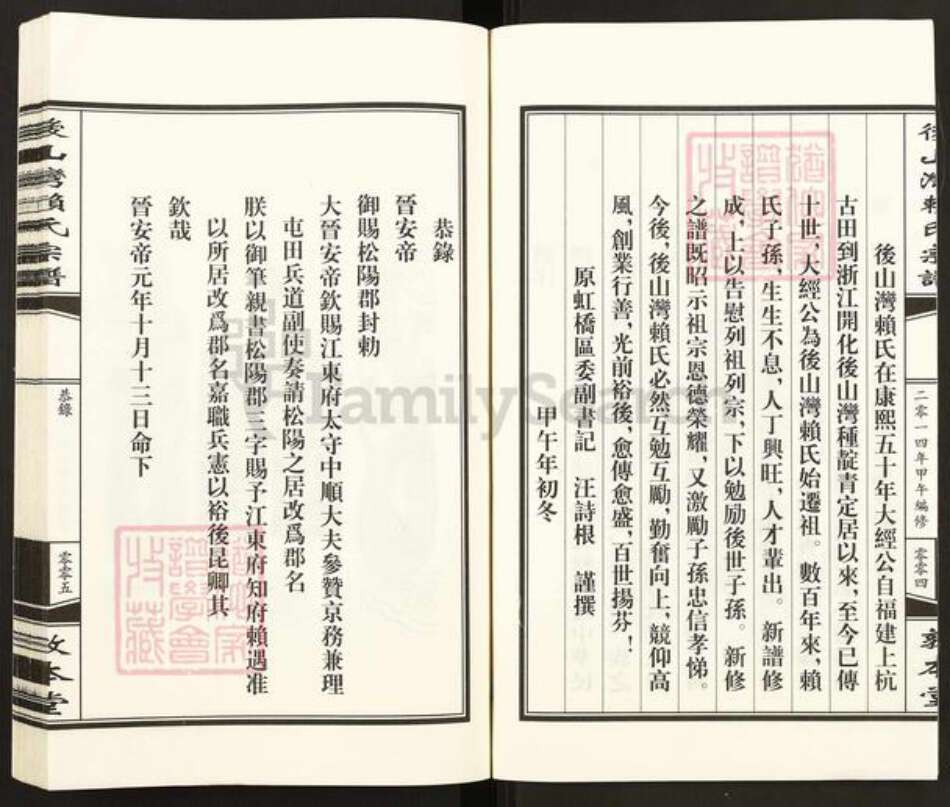 後山灣賴氏宗譜
二零一四年甲午編修
零零四
敦本堂
後山灣賴氏在康熙五十年大經公自福建上杭
古田到浙江開化後山灣種靛青定居以來，至今已傳
十世，大經公為後山灣賴氏始遷祖。數百年來，賴
氏子孫，生生不息，人丁興旺，人才輩出。新譜修
成，上以告慰列祖列宗，下以勉励後世子孫。新修
之譜既昭示祖宗恩德榮耀，又激勵子孫忠信孝悌。
今後，後山灣賴氏必然互勉互勵，勤奮向上，競仰高
風，創業行善，光前裕後，愈傳愈盛，百世揚芬！
原虹橋區委副書記　汪詩根　謹撰
甲午年初冬
恭錄
晉安帝
御賜松陽郡封勅
大晉安帝欽賜江東府太守中順大夫參贊京務兼理
屯田兵道副使奏請松陽之居改爲郡名
朕以御筆親書松陽郡三字賜予江東府知府賴遇准
以所居改爲郡名嘉職兵憲以裕後昆卿其
欽哉
晉安帝元年十月十二日命下
後山灣賴氏宗譜
恭錄
零零五
敦本堂
FamilySearch